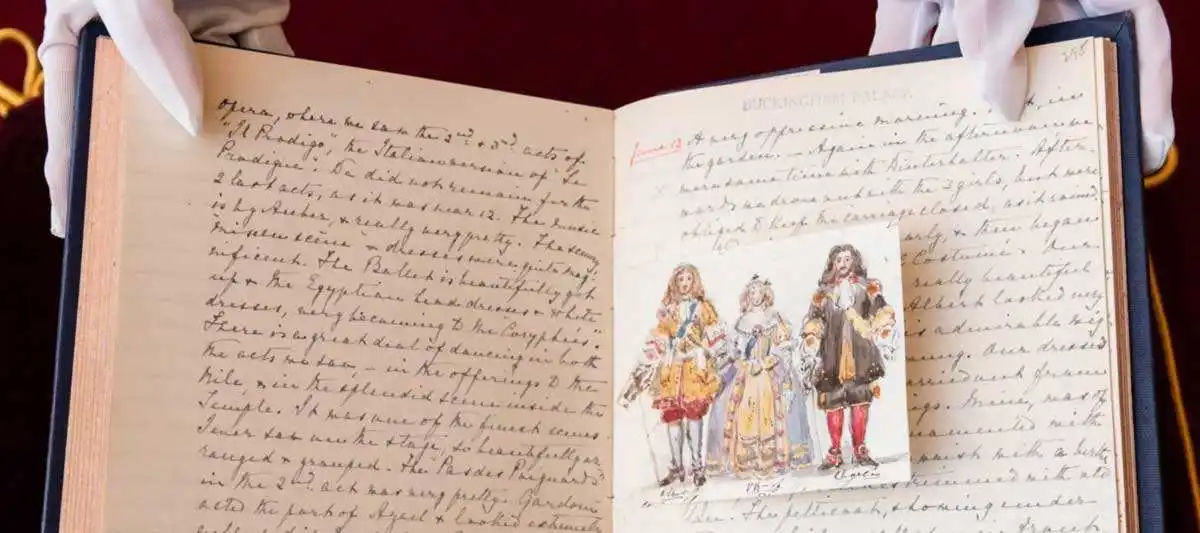 opera, where we saw the 2nd & 3rd acts of
"Il Prodigo", the Italian version of "Le
Prodigue". We did not remain for the
2 last acts, as it was near 12. The music
is by Auber, & really very pretty. The scenery,
"mise en scène" & dresses were quite mag-
nificent. The Ballet is beautifully got
up & the Egyptian head dresses & white
dresses, very becoming to the Coryphées.
There is a great deal of dancing in both
the acts we saw, — in the offerings to the
Nile, & in the splendid scene inside the
Temple. It was one of the finest scenes
I ever saw on the stage, so beautifully ar-
ranged & grouped. The Pas des Poignards
in the 2nd act was very pretty. Gardoni
acted the part of Azael & looked extremely
BUCKINGHAM PALACE.
June 13
A very oppressive morning. in
the garden. — Again in the afternoon
some time with Winterhalter. After-
wards we drove out with the 3 girls, but were
obliged to keep the carriage closed, as it rained
early, & then began
Costumé. Our
really beautiful
Albert looked very
is admirable
Our dresses
carried out from
Mine, was of
ornamented with
with a
trimmed with old
The petticoat, showing under
Charles